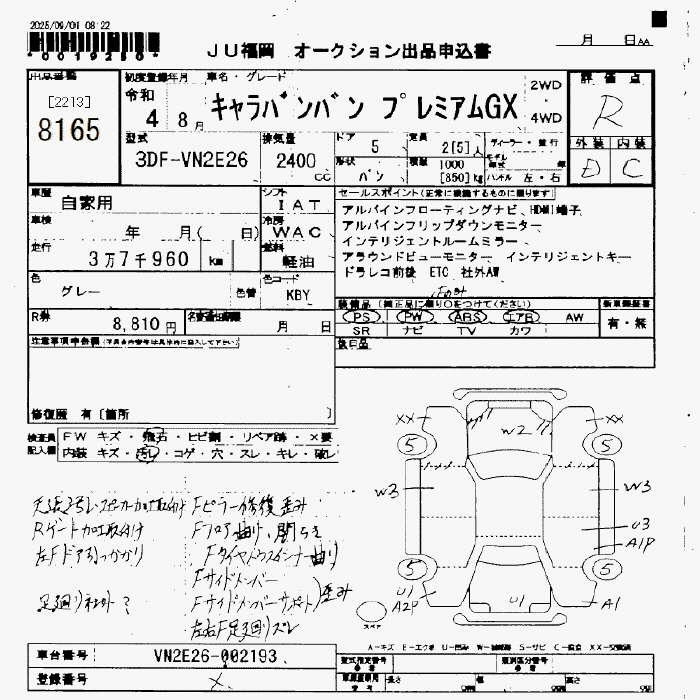 2025/09/01 08:22
*0019250*
JU福岡 オークション出品申込書
月 日 AA
出品番号
[2213]
8165
初度登録年月
令和
4 8月
車名・グレード
キャラバンバン プレミアムGX
2WD
4WD
評価点
R
外装 内装
D C
型式
3DF-VN2E26
排気量
2400 cc
ドア
5
定員
2[5]人
形状
バン
積載
1000
[850]kg
ディーラー・並行
モデル
年式 年
ハンドル 左・右
車歴
自家用
シフト
IAT
車検
年 月( 日)
冷房
WAC
走行
3万7千960 km
燃料
軽油
色
グレー
色替
色コード
KBY
R券
8,810円
名変期限
月 日
セールスポイント(正常に機能するものに限ります)
アルパインフローティングナビ、HDMI端子
アルパインフリップダウンモニター
インテリジェントルームミラー
アラウンドビューモニター インテリジェントキー
ドラレコ前後 ETC 社外AW
装備品(純正品に限り○をつけてください)
PS PW ABS エアB AW
SR ナビ TV カワ
新車保証書
有・無
後日品
注意事項申告欄
修復歴 有〔箇所 〕
検査員
記入欄
FW キズ・飛石・ヒビ割・リペア跡・×要
内装 キズ・汚レ・コゲ・穴・スレ・キレ・破レ
天張ヨゴレ・スピーカー加工取付け
Rゲート加工取付け
左Fドア引っかかり
足廻り ?
Fピラー修復歪み
Fフロア曲り、開らき
Fタイヤハウスインナー曲り
Fサイドメンバー
Fサイドメンバーサポート 歪み
左右F足廻りズレ
XX
XX
W2
5
5
W3
W3
U3
A1P
5
5
U1
A2P
U1
A1
スペア
A-キズ E-エクボ U-凹み W-補修跡 S-サビ C-腐食 XX-交換済
車台番号
VN2E26-002193
登録番号
×
型式指定番号
類別区分番号
長さ cm 幅 cm 高さ cm